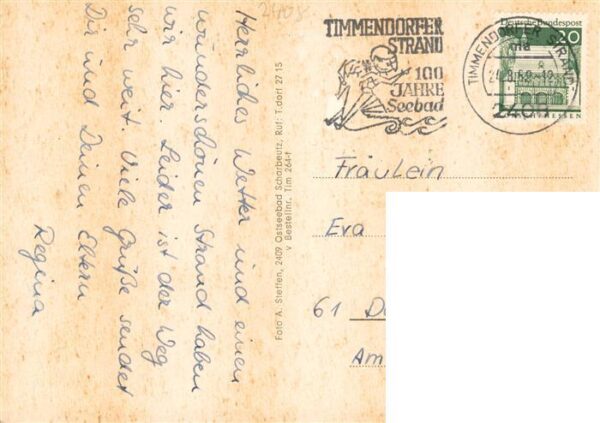 2408
Herrliches Wetter und einen
wunderschönen Strand haben
wir hier. Leider ist der Weg
sehr weit. Viele Grüße sendet
Dir und Deinen Eltern
Regina
Foto A. Steffen, 2409 Ostseebad Scharbeutz, Ruf: T.dorf 27 15
v Bestellnr. Tim 264-f
TIMMENDORFER
STRAND
100
JAHRE
Seebad
TIMMENDORFER STRAND
2408
Deutsche Bundespost
20
Fräulein
Eva
61 D
Am